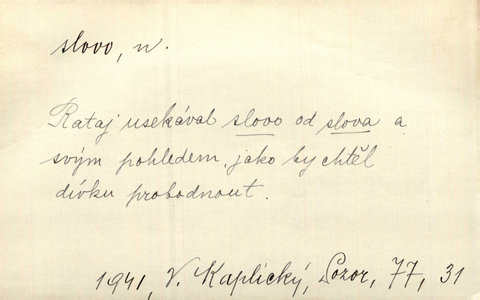 slovo, n.
Rataj usekával slovo od slova a
svým pohledem, jako by chtěl
dívku probodnout.
1941, V. Kaplický, Pozor, 77, 31